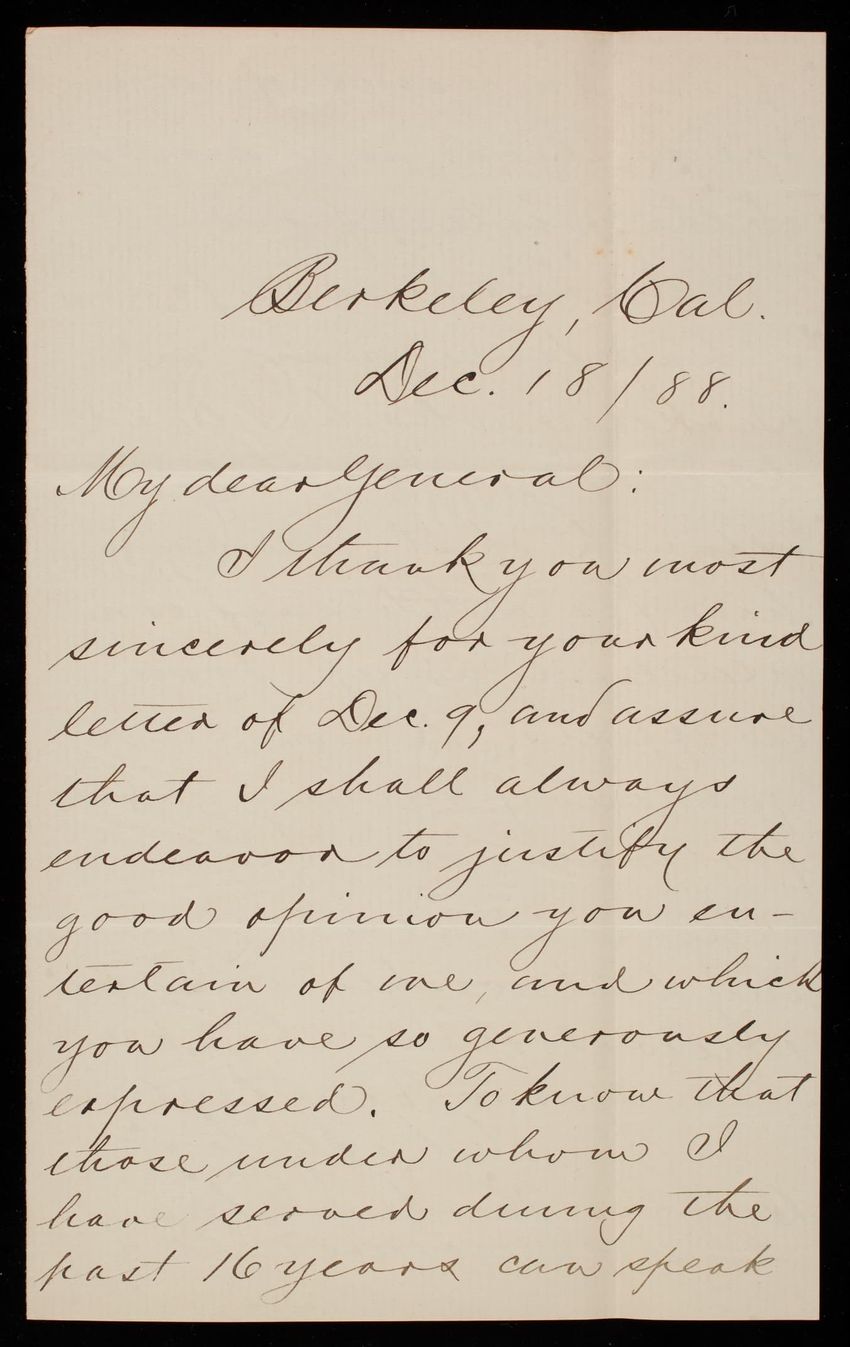 Berkeley, Cal.
Dec. 18/88.
My dear General:
I thank you most
sincerely for your kind
letter of Dec. 9, and assure
that I shall always
endeavor to justify the
good opinion you en-
tertain of me, and which
you have so generously
expressed. To know that
those under whom I
have served during the
past 16 years can speak